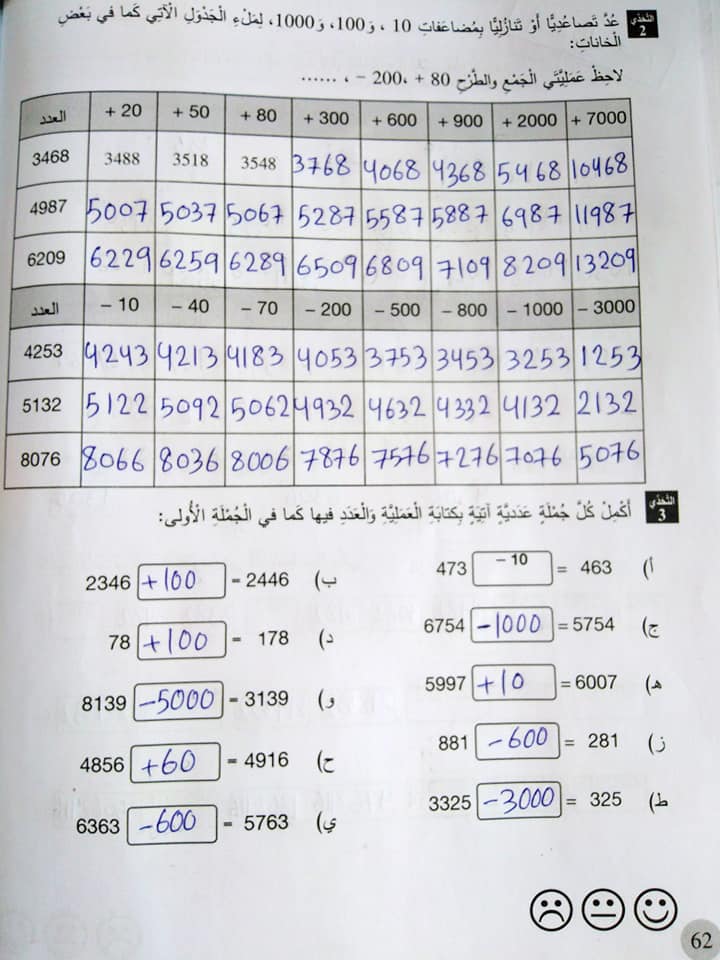 التَّحَدّي 2 عُدَّ تَصاعُدِيًّا أَوْ تَنازُلِيًّا بِمُضاعَفاتِ 10 ، وَ100، وَ1000، لِمَلْءِ الْجَدْوَلِ الْآتي كَما في بَعْضِ
الْخاناتِ:
لاحِظْ عَمَلِيَّتَيِ الْجَمْعِ والطَّرْحِ 80 + ،200 − ، ......
العدد + 20 + 50 + 80 + 300 + 600 + 900 + 2000 + 7000
3468 3488 3518 3548 3768 4068 4368 5468 10468
4987 5007 5037 5067 5287 5587 5887 6987 11987
6209 6229 6259 6289 6509 6809 7109 8209 13209
العدد − 10 − 40 − 70 − 200 − 500 − 800 − 1000 − 3000
4253 4243 4213 4183 4053 3753 3453 3253 1253
5132 5122 5092 5062 4932 4632 4332 4132 2132
8076 8066 8036 8006 7876 7576 7276 7076 5076
التَّحَدّي 3 أَكْمِلْ كُلَّ جُمْلَةٍ عَدَدِيَّةٍ آتِيَةٍ بِكِتابَةِ الْعَمَلِيَّةِ وَالْعَدَدِ فيها كَما في الْجُمْلَةِ الْأولى:
أ) 473 − 10 = 463
ب) 2346 +100 = 2446
ج) 6754 −1000 = 5754
د) 78 +100 = 178
هـ) 5997 +10 = 6007
و) 8139 −5000 = 3139
ز) 881 −600 = 281
ح) 4856 +60 = 4916
ط) 3325 −3000 = 325
ي) 6363 −600 = 5763
62